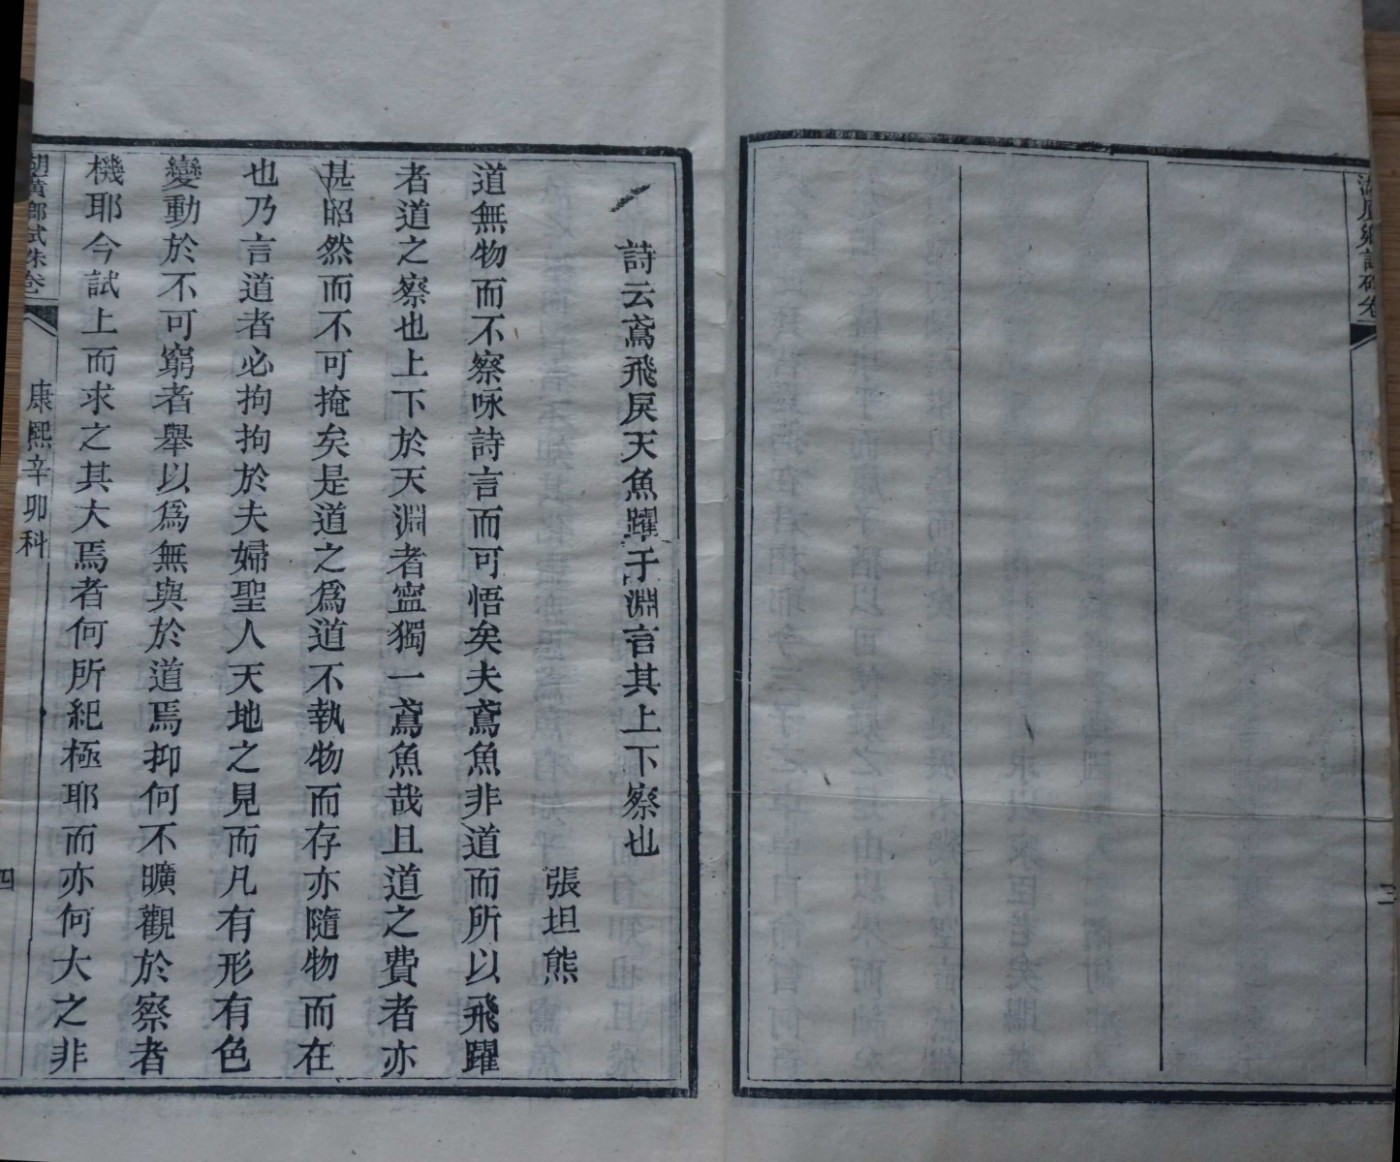 三
詩云鳶飛戾天魚躍于淵言其上下察也
張坦熊
道無物而不察咏詩言而可悟矣夫鳶魚非道而所以飛躍
者道之察也上下於天淵者寍獨一鳶魚哉且道之費者亦
甚昭然而不可掩矣是道之爲道不執物而存亦隨物而在
也乃言道者必拘拘於夫婦聖人天地之見而凡有形有色
變動於不可窮者舉以爲無與於道焉抑何不曠觀於察者
機耶今試上而求之其大焉者何所紀極耶而亦何大之非
試硃卷
康熙辛卯科
四